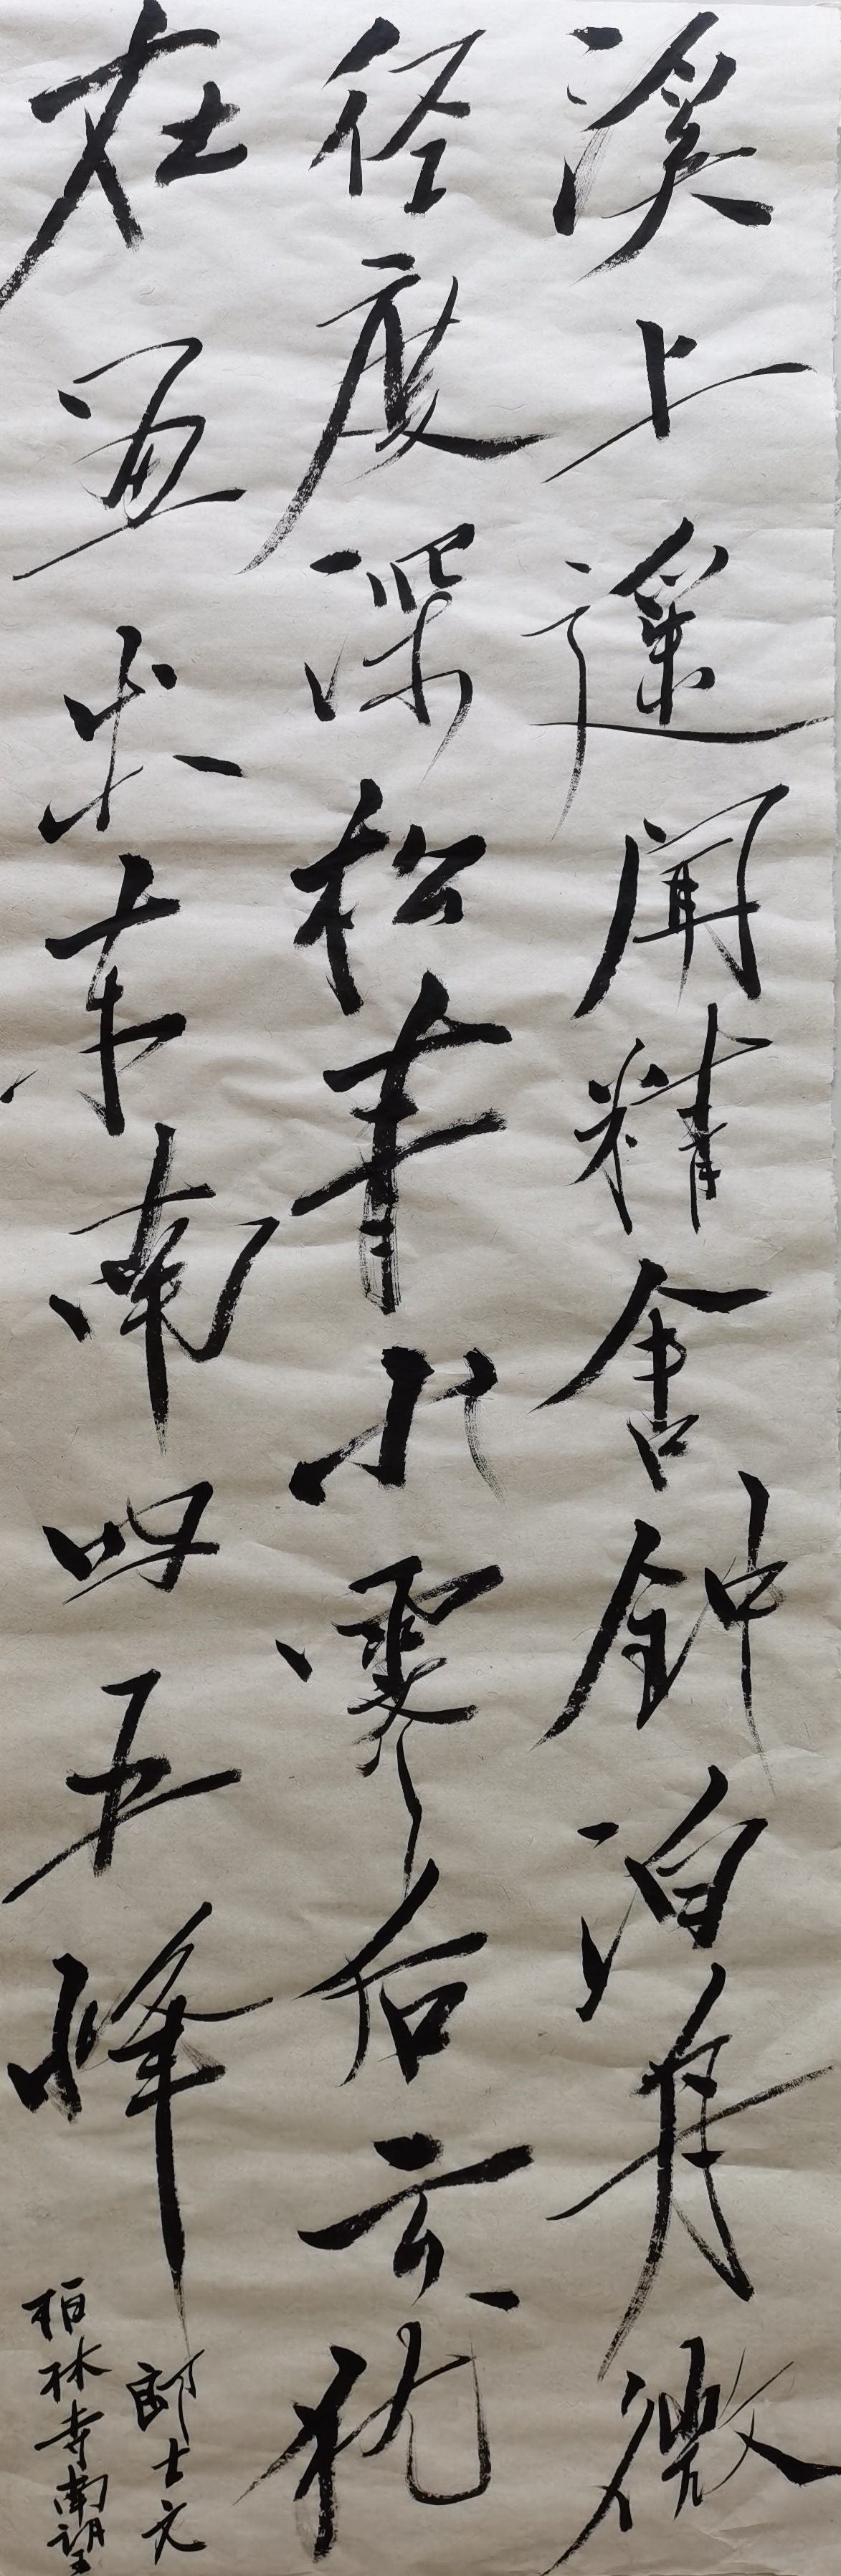 溪上遥闻精舍钟泊舟微
径度深松青山霁后云犹
在画出东南四五峰
郎士元
柏林寺南望